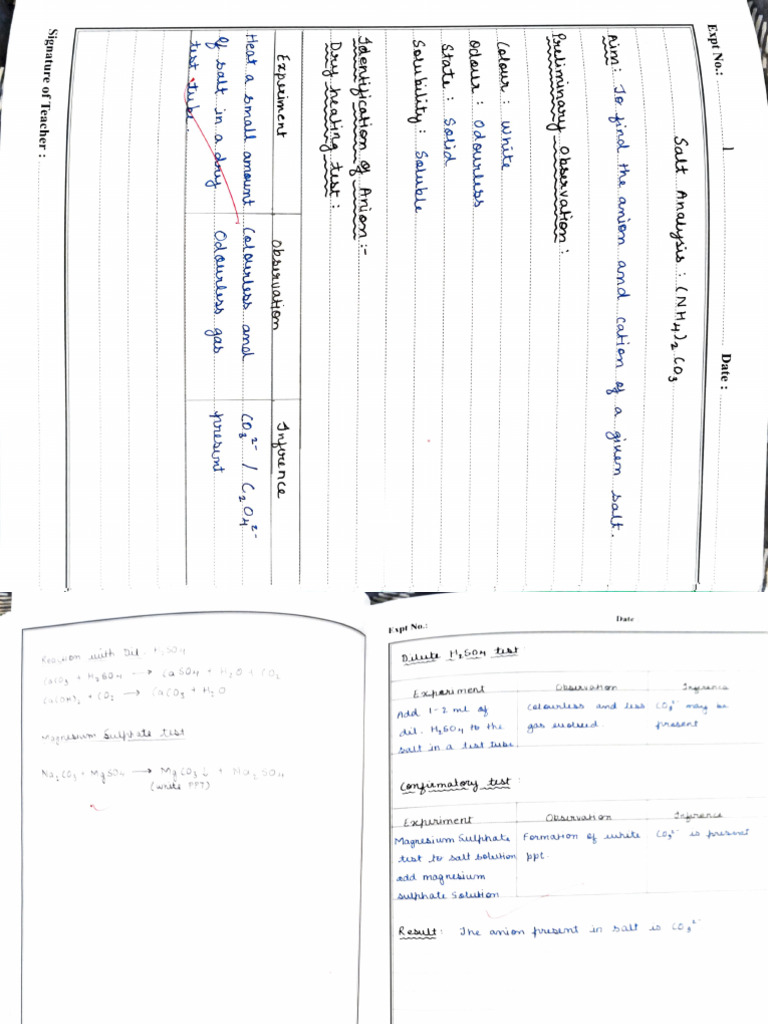 Expt No.: 1 Date :
Salt Analysis : (NH4)2 CO3
Aim: To find the anion and cation of a given salt.
Preliminary Observation :
Colour : White
Odour : Odourless
State : Solid
Solubility : Soluble
Identification of Anion :-
Dry heating test :
Experiment Observation Inference
Heat a small amount Colourless and CO3²⁻ / C2O4²⁻
of salt in a dry Odourless gas present
test tube.
Signature of Teacher :
Reaction with Dil. H2SO4
CaCO3 + H2SO4 → CaSO4 + H2O + CO2
Ca(OH)2 + CO2 → CaCO3 + H2O
Magnesium Sulphate test
Na2CO3 + MgSO4 → MgCO3↓ + Na2SO4
(white PPT)
Expt No.: Date
Dilute H2SO4 test
Experiment Observation Inference
Add 1-2 ml of colourless and less CO3²⁻ may be
dil. H2SO4 to the gas evolved present
salt in a test tube
Confirmatory test :
Experiment Observation Inference
Magnesium Sulphate Formation of white CO3²⁻ is present
test to salt solution ppt.
add magnesium
sulphate Solution
Result : The anion present in salt is CO3²⁻